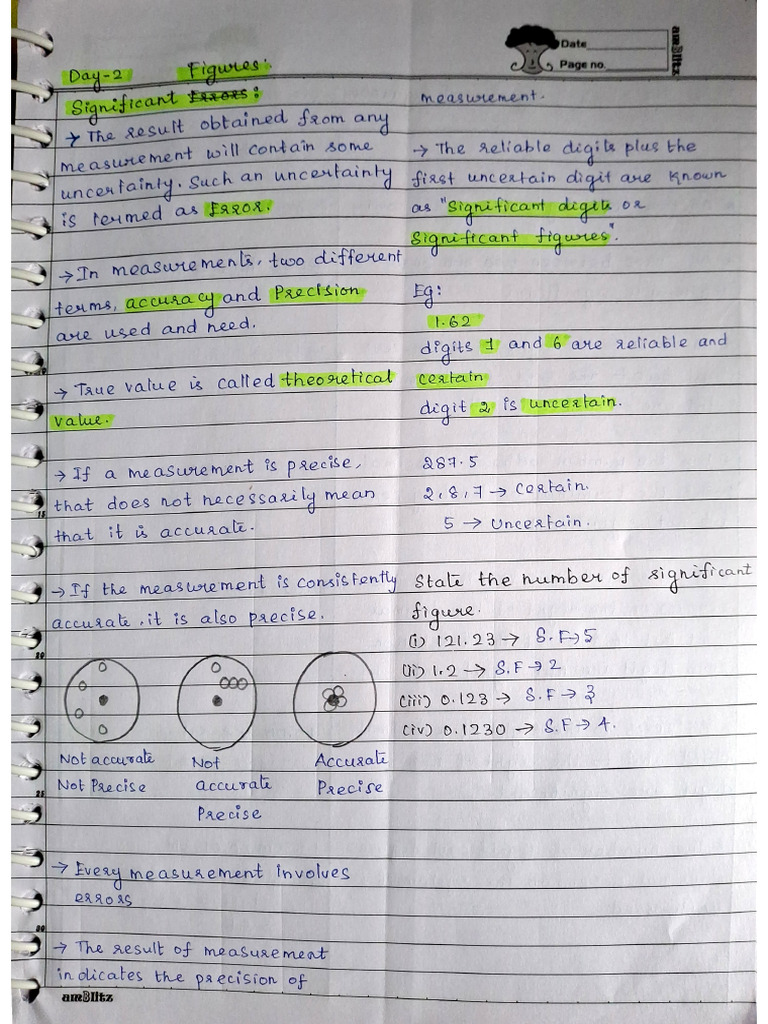 Date
Page no.
amBlitz
Day-2 Figures:
Significant Errors:
→ The result obtained from any
measurement will contain some
uncertainty. Such an uncertainty
is termed as Error.
→ In measurements, two different
terms, accuracy and Precision
are used and need.
→ True value is called theoretical
value.
→ If a measurement is precise,
that does not necessarily mean
that it is accurate.
→ If the measurement is consistently
accurate, it is also precise.
Not accurate
Not Precise
Not
accurate
Precise
Accurate
Precise
→ Every measurement involves
errors
→ The result of measurement
indicates the precision of
measurement.
→ The reliable digits plus the
first uncertain digit are known
as "Significant digits or
Significant figures".
Eg:
1.62
digits 1 and 6 are reliable and
certain
digit 2 is uncertain.
287.5
2,8,7 → Certain.
5 → Uncertain.
State the number of significant
figure.
(i) 121.23 → S.F→5
(ii) 1.2 → S.F→2
(iii) 0.123 → S.F→3
(iv) 0.1230 → S.F→4.
amBlitz